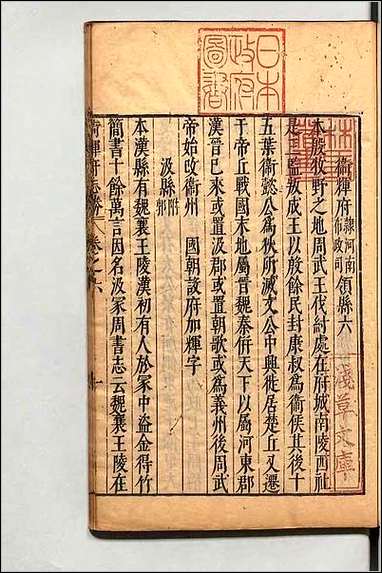 日本
政府
圖書
林
淺草文庫
衛輝府隷河南布政司領縣六
本殷牧野之地周武王伐紂處在府城南陵西社
是監叛成王以殷餘民封康叔為衛侯其後十
五葉衛懿公為狄所滅文公中興徙居楚丘又遷
于帝丘戰國末地屬晉魏秦併天下以屬河東郡
漢晉已來或置汲郡或置朝歌或為義州後周武
帝始改衛州 國朝設府加輝字
汲縣附郭
本漢縣有魏襄王陵漢初有人於冢中盜金得竹
簡書十餘萬言因名汲冢周書志云魏襄王陵在
衛輝府志勝 卷之六